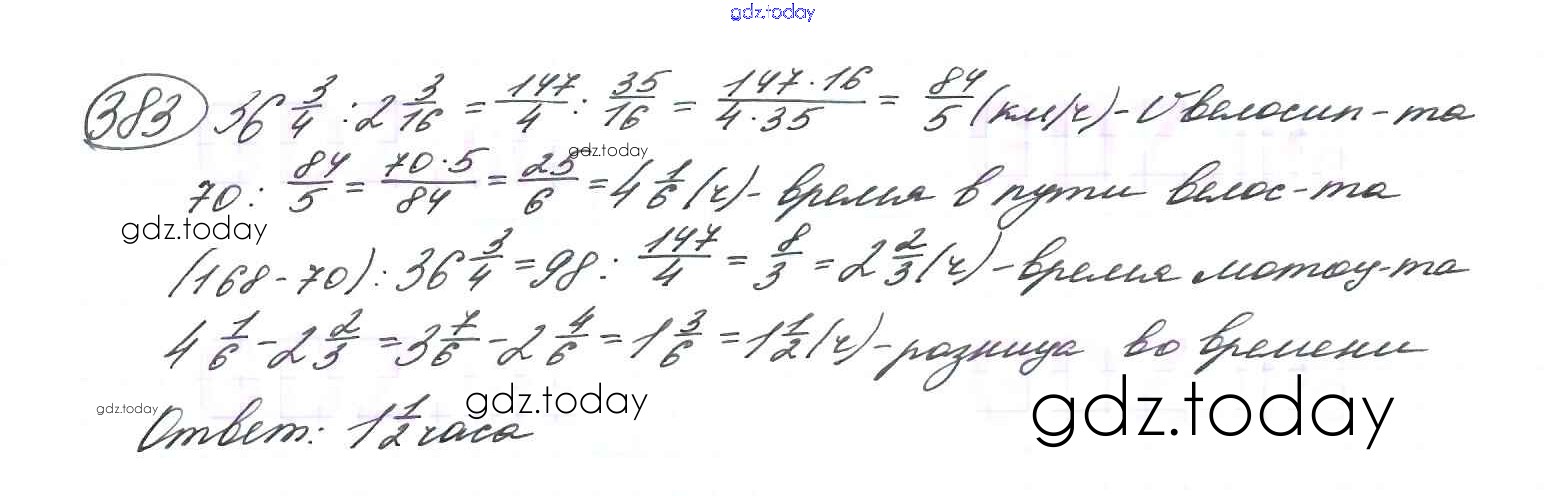 gdz.today
383 36 3/4 : 2 3/16 = 147/4 : 35/16 = 147·16/4·35 = 84/5 (км/ч) - V велосип-та
gdz.today
70 : 84/5 = 70·5/84 = 25/6 = 4 1/6 (ч) - время в пути велос-та
gdz.today
(168 - 70) : 36 3/4 = 98 : 147/4 = 8/3 = 2 2/3 (ч) - время мотоц-та
4 1/6 - 2 2/3 = 3 7/6 - 2 4/6 = 1 3/6 = 1 1/2 (ч) - разница во времени
gdz.today
gdz.today
gdz.today
Ответ: 1 1/2 часа